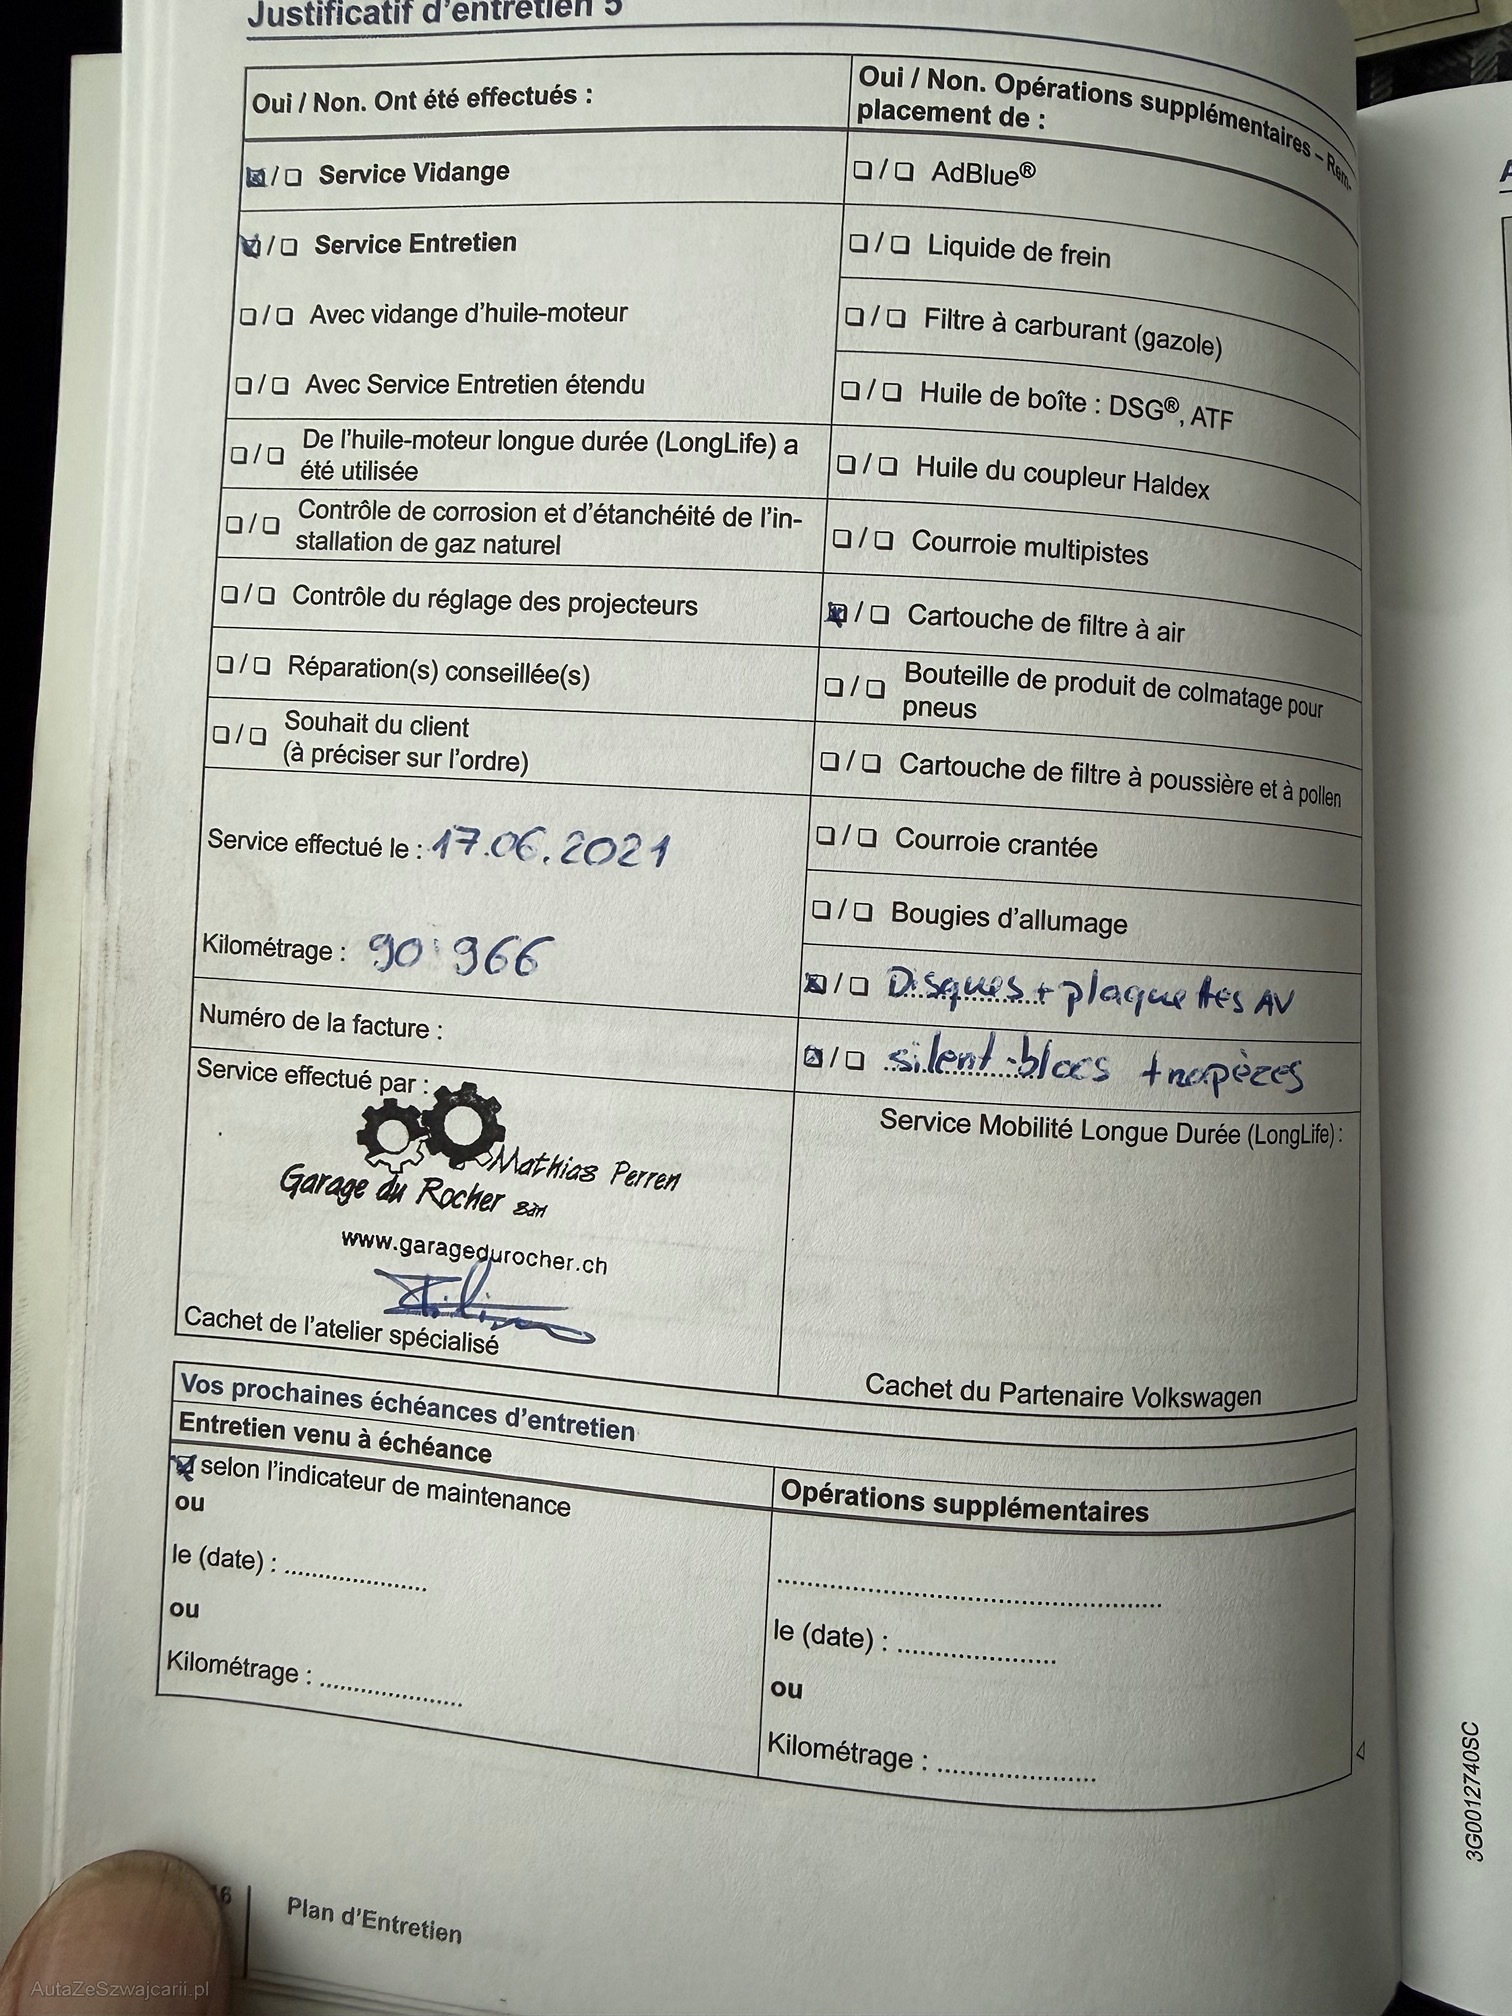 Justificatif d'entretien 5
Oui / Non. Ont été effectués :
☒/❏ Service Vidange
☒/❏ Service Entretien
❏/❏ Avec vidange d'huile-moteur
❏/❏ Avec Service Entretien étendu
❏/❏ De l'huile-moteur longue durée (LongLife) a
été utilisée
❏/❏ Contrôle de corrosion et d'étanchéité de l'in-
stallation de gaz naturel
❏/❏ Contrôle du réglage des projecteurs
❏/❏ Réparation(s) conseillée(s)
❏/❏ Souhait du client
(à préciser sur l'ordre)
Service effectué le : 17.06.2021
Kilométrage : 90'966
Numéro de la facture :
Service effectué par :
Mathias Perren
Garage du Rocher Sàrl
www.garagedurocher.ch
Cachet de l'atelier spécialisé
Oui / Non. Opérations supplémentaires – Rem-
placement de :
❏/❏ AdBlue®
❏/❏ Liquide de frein
❏/❏ Filtre à carburant (gazole)
❏/❏ Huile de boîte : DSG®, ATF
❏/❏ Huile du coupleur Haldex
❏/❏ Courroie multipistes
☒/❏ Cartouche de filtre à air
❏/❏ Bouteille de produit de colmatage pour
pneus
❏/❏ Cartouche de filtre à poussière et à pollen
❏/❏ Courroie crantée
❏/❏ Bougies d'allumage
☒/❏ Disques + plaquettes AV
☒/❏ silent-blocs trapèzes
Service Mobilité Longue Durée (LongLife) :
Cachet du Partenaire Volkswagen
Vos prochaines échéances d'entretien
Entretien venu à échéance
☒ selon l'indicateur de maintenance
ou
le (date) : ....................
ou
Kilométrage : ....................
Opérations supplémentaires
......................................................
le (date) : ......................
ou
Kilométrage : ......................
16 Plan d'Entretien
3G0012740SC
AutaZeSzwajcarii.pl